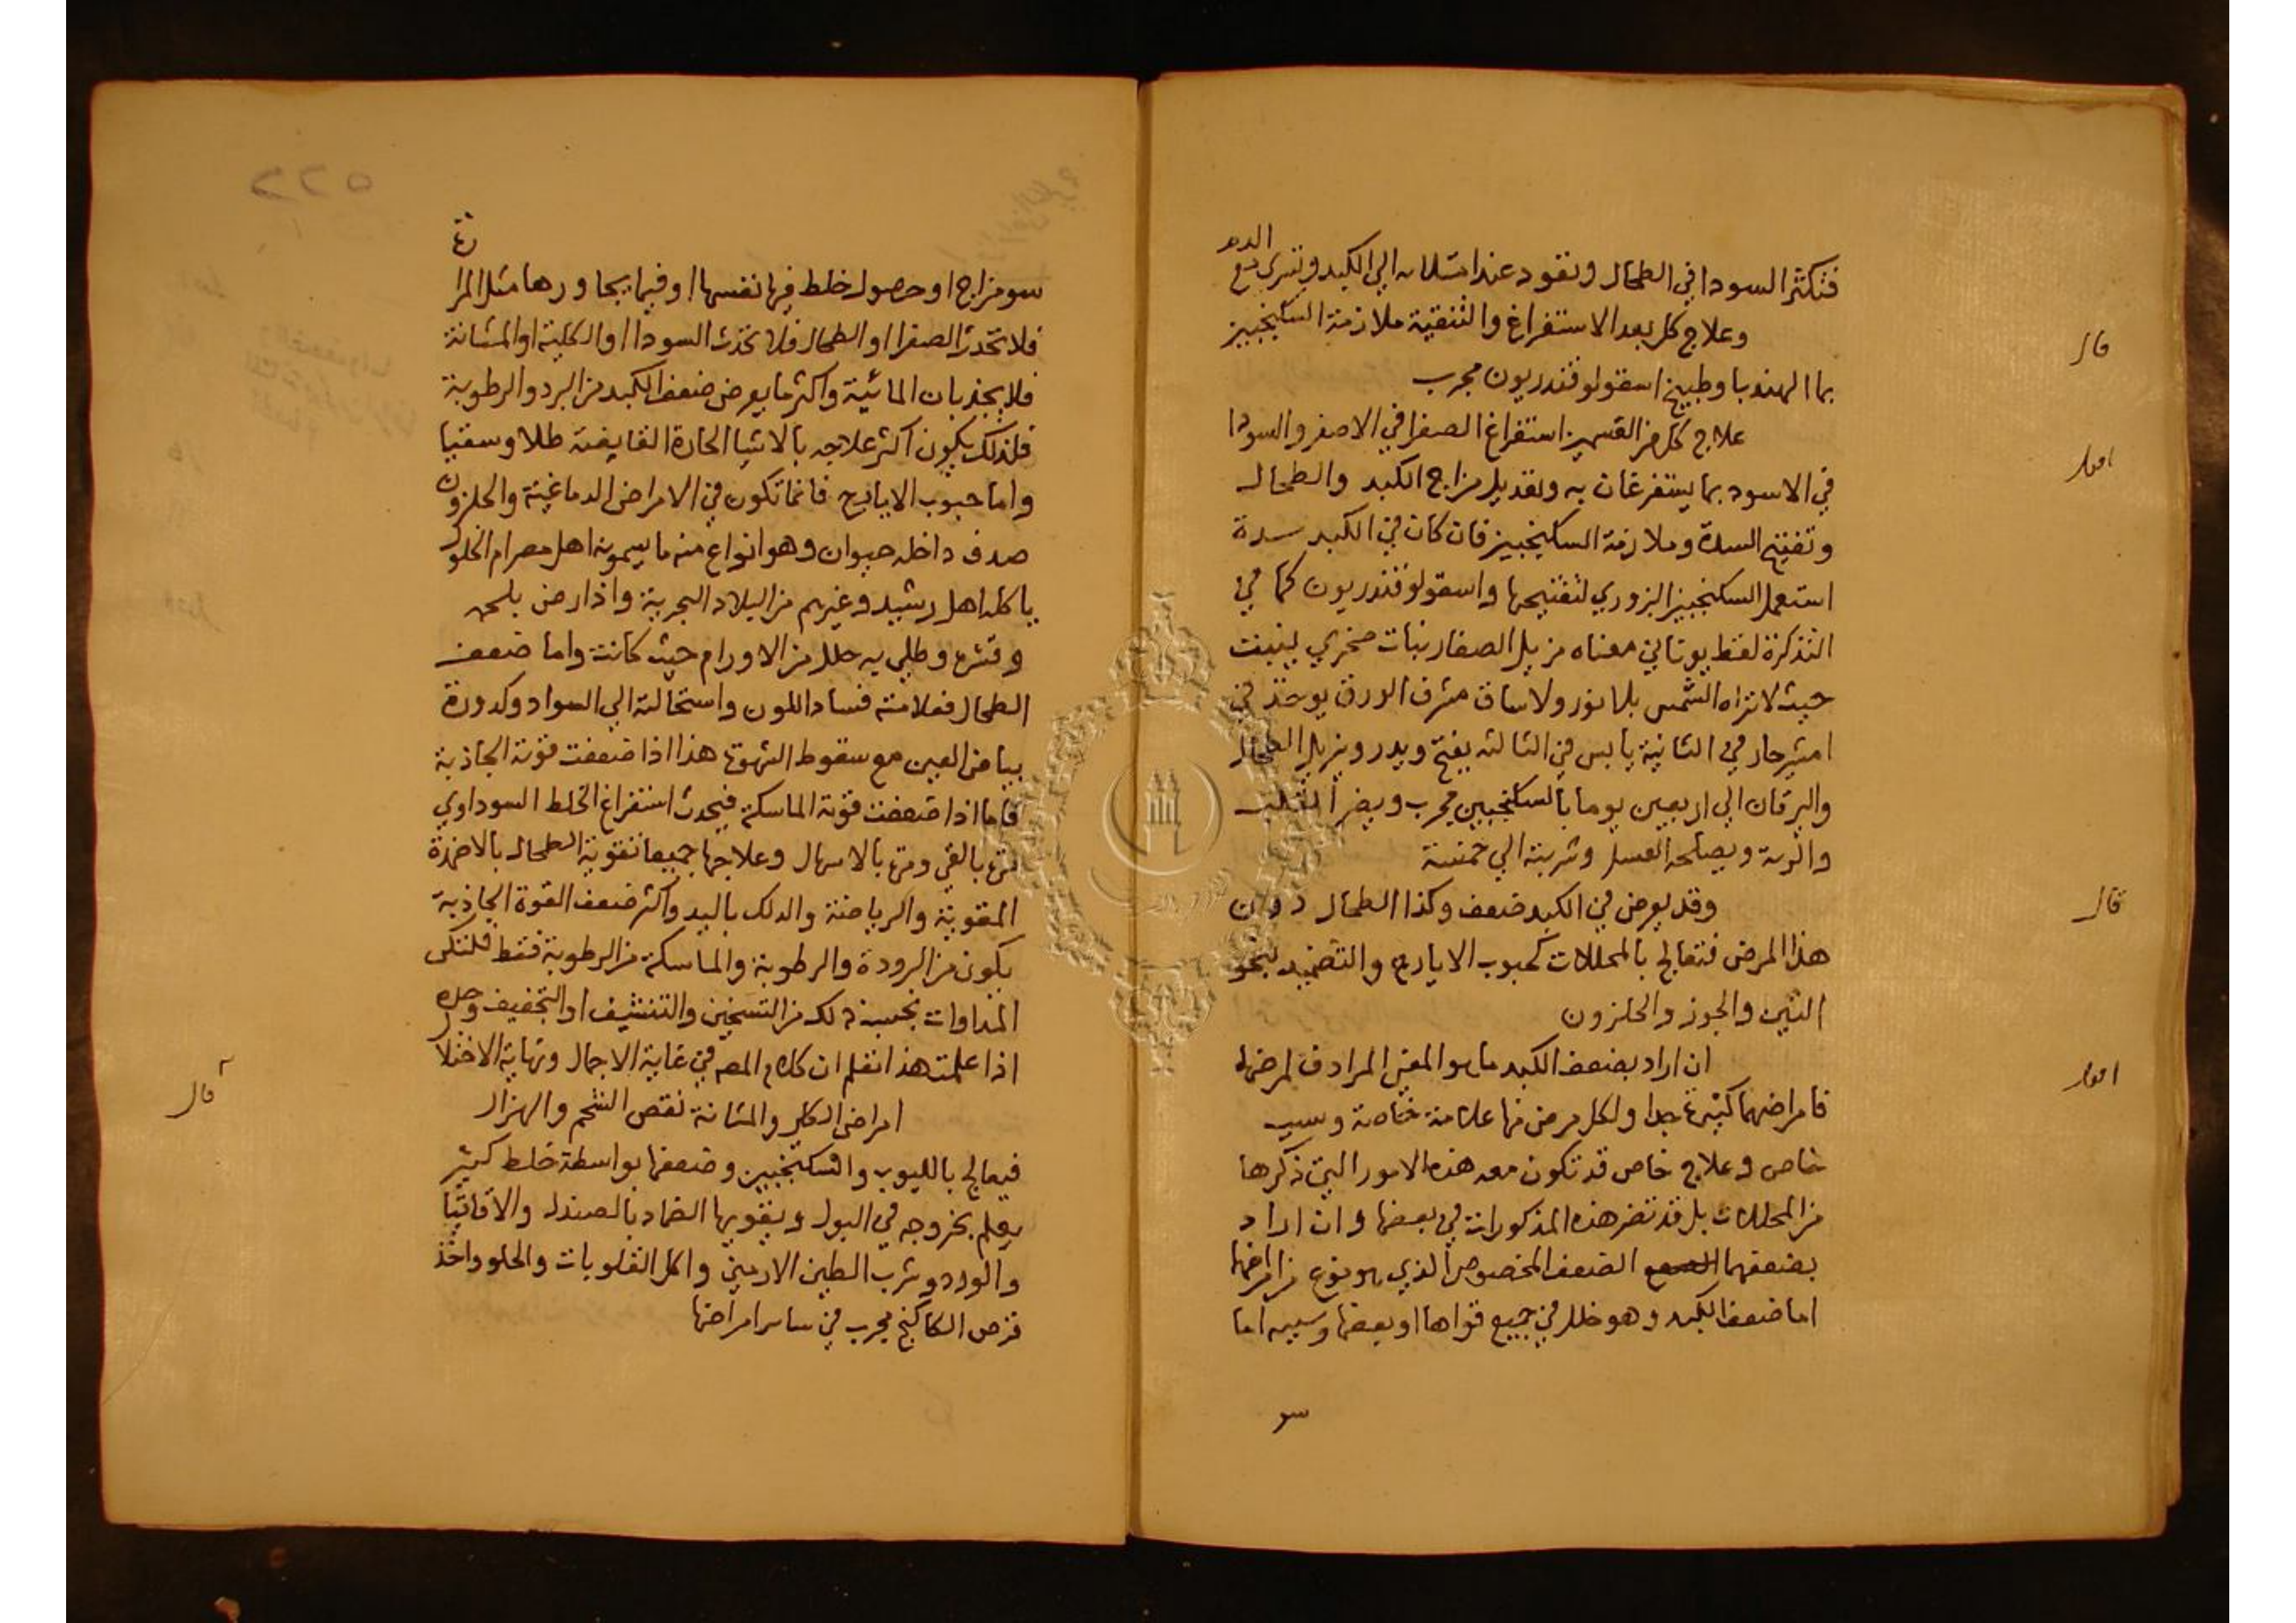 فتكثر السودا في الطحال وتقود عند امتلائه الي الكبد وتسري مع الدم
قال
وعلاج كل بعد الاستفراغ والتنقية ملازمة السكنجبين
بما الهندبا وطبيخ اسقولوقندريون مجرب
اقول
علاج كل من القسمين استفراغ الصفرا في الاصفر والسودا
في الاسود بما يستفرغان به وتعديل مزاج الكبد والطحال
وتفتيح السدة وملازمة السكنجبين فان كان في الكبد سدة
استعمل السكنجبين البزوري لتفتيحها واسقولوقندريون كما في
التذكرة لفظ يوناني معناه مزيل الصفار نبات صخري ينبت
حيث لا تراه الشمس بلا نور ولا ساق مشرف الورق يوخذ في
امشير حار في الثانية يابس في الثالثه يفتح ويدر ويزيل الطحال
واليرقان الي اربعين يوما بالسكنجبين مجرب ويضر
والرية ويصلحه العسل وشربته الي خمسة
قال
وقد يعرض في الكبد ضعف وكذا الطحال دون
هذا المرض فتعالج بالمحللات كحبوب الايارج والتضميد بنحو
التين والجوز والحلزون
اقول
ان اراد بضعف الكبد ما هو المعني المرادف لمرضها
فامراضهما كثيرة جدا ولكل مرض منها علامة خاصة وسبب
خاص وعلاج خاص قد تكون معه هذه الامور التي ذكرها
من المحللات بل قد تضر هذه المذكورات في بعضها وان اراد
بضعفهما الضعف المخصوص الذي هو نوع من امراضها
اما ضعف الكبد وهو خلل في جميع قواها او بعضها وسببه اما
سو
سو مزاج او حصول خلط فيها نفسها او فيما يجاورها مثل المرارة
فلا تجذب الصفرا او الطحال فلا تجذب السودا او الكلية او المثانة
فلا يجذبان المائية واكثر ما يعرض ضعف الكبد من البرد والرطوبة
فلذلك يكون اكثر علاجه بالاشيا الحارة القابضة طلا وسقيا
واما حبوب الايارج فانما تكون في الامراض الدماغية والحلزون
صدف داخله حيوان وهو انواع منه ما يسمونه اهل مصر ام الخلول
ياكله اهل رشيد وغيرهم من البلاد البحرية واذا رض بلحمه
وقشره وطلي به حلل من الاورام حيث كانت واما ضعف
الطحال فعلامته فساد اللون واستحالته الي السواد وكدورة
بياض العين مع سقوط الشهوة هذا اذا ضعفت قوته الجاذبة
فاما اذا ضعفت قوته الماسكة فيحدث استفراغ الخلط السوداوي
مرة بالقي ومرة بالاسهال وعلاجها جميعا تقوية الطحال بالاضمدة
المقوية والرياضة والدلك باليد واكثر ضعف القوة الجاذبة
يكون من البرودة والرطوبة والماسكة من الرطوبة فقط فلتكن
المداوات بحسب ذلك من التسخين والتنشيف او التجفيف وحده
اذا علمت هذا تعلم ان كلام المصه في غاية الاجمال ونهاية الاختلا
قال
امراض الكلي والمثانة نقص الشحم والهزال
فيعالج باللبوب والسكنجبين وضعفها بواسطة خلط كثير
يعلم بخروجه في البول ويقويها الضماد بالصندل والاقاقيا
والورد وشرب الطين الارمني واكل القلوبات والحلو واخذ
قرص الكاكنج مجرب في ساير امراضها